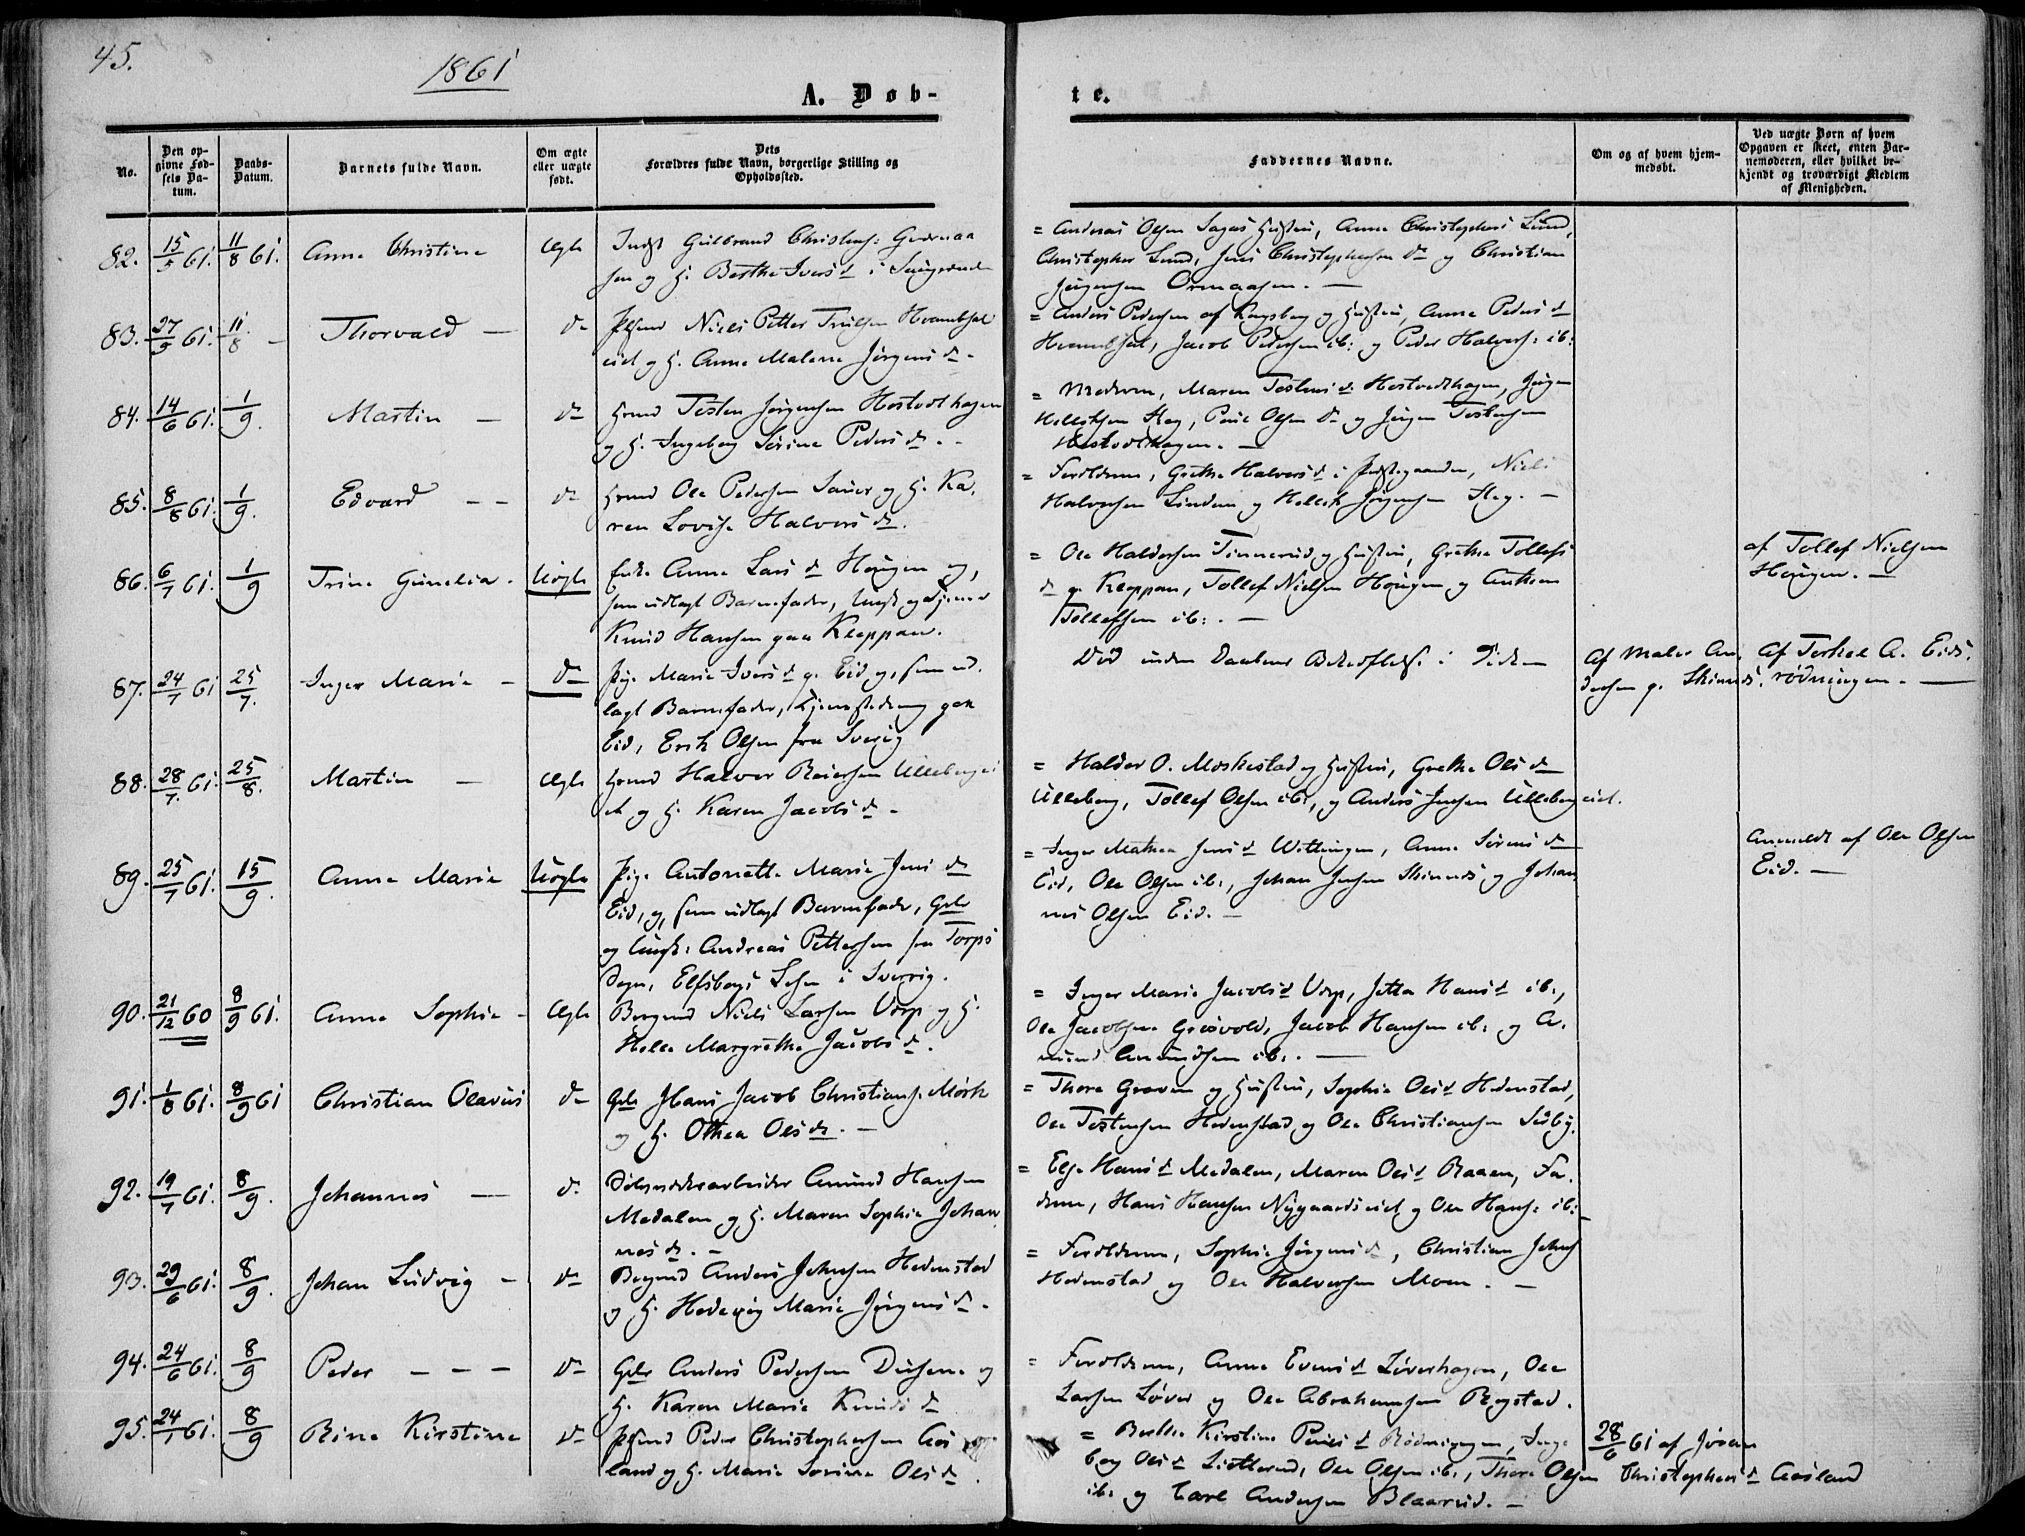 45.
1861
A. Døb-
te.
No.
Den op-
givne Fød-
sels Da-
tum.
Daabs-
Datum.
Barnets fulde Navn.
Om ægte
eller uægte
født.
Dets
Forældres fulde Navn, borgerlige Stilling og
Opholdssted.
Faddernes Navne.
Om og af hvem hjem-
medøbt.
Ved uægte Børn af hvem
Opgaven er skeet, enten Bar-
nemoderen, eller hvilket be-
kjendt og troværdigt Medlem
af Menigheden.
82. 15/5 61. 11/8 61. Anne Christine Ægte Indst Gulbrand Christens:
sen og H. Berthe Ivers d i
= Andreas Olsen Sagas Hustru, Anne Christophers Lund,
Christopher Lund, Jens Christophersen do og Christian
Jørgensen Ormaasen. —
83. 27/5 61. 11/8 — Thorvald — do Niels Petter Trulsen Hvambsal
eiet og H. Anne Malene Jørgens d. -
= Anders Pedersen af Kongsberg og Hustru, Anne Peders d
Hvambsal, Jacob Pedersen ib: og Peder Halvers: ib:
84. 14/6 61. 1/9. Martin — do Grmd Testen Jørgensen Hostvedthagen
og H. Ingeborg Sørine Peders d. -
= Moderen, Maren Testens d Hostvedthagen, Jørgen
Helliksen Steg, Paul Olsen do og Jørgen Testensen
Hostvedthagen. —
85. 8/8 61. 1/9. Edvard — — do Grmd Ole Pedersen Sauer og H. Ka-
ren Lovise Halvors d.
= Forældrene, Grethe Halvors d i Prestegaarden, Niels
Halvorsen Linden og Hellik Jørgensen Steg. —
86. 6/7 61. 1/9 Trine Gunelia. Uægte Enke Anne Lars d Hougen og,
som udlagt Barnefader, Ungk og Tjener
Knud Hansen paa Kleppan.
= Ole Haldorsen Tinnerud og Hustru, Grethe Tollefs
d p. Kleppan, Tollef Nielsen Hougen og Anthon
Tollefsen ib:. —
af Tollef Nielsen
Hougen. —
87. 24/7 61 25/7. Inger Marie — do Pige Marie Ivers d p. Eid og, som ud-
lagt Barnefader, Tjenestedreng paa
Eid, Erik Olsen fra Sverig
Død inden Daabens Bekræftelse i Kirken
Af Maler An-
dersen p. Skinnes.
Af Terkel A. Eids-
rødningen. —
88. 28/7. 61. 25/8. Martin — Ægte Grmd Halvor Reiersen Ullebergei-
et og H. Karen Jacobs d -
= Haldor O. Moskestad og Hustru, Grethe Ols d
Ulleberg, Tollef Olsen ib:, og Anders Jensen Ullebergeiet.
89. 25/7 61. 15/9. Anne Marie Uægte Pige Antonette Marie Jens d
Eid, og, som udlagt Barnefader, Grbr
og Ungk: Andreas Pettersen fra Torps
Sogn, Elfsborgs Lehn i Sverrig.
= Inger Mathea Jens d Wittingen, Anne Sørens d
Eid, Ole Olsen ib:, Johan Jensen Skinnes og Johan-
nes Olsen Eid. —
Anmeldt af Ole Olsen
Eid. —
90. 21/12 60 8/9 61. Anne Sophie — Ægte Bergmd Niels Larsen Vorp og H.
Helle Margrethe Jacobs d.
= Inger Marie Jacobs d Vorp, Jette Hans d ib:,
Ole Jacobsen Grosvold, Jacob Hansen ib: og A-
mund Amundsen ib:. —
91. 1/8 61. 8/9 61 Christian Olavus do Grbr Hans Jacob Christians. Mørk
og H. Othea Ols d. —
= Thore Graven og Hustru, Sophie Ols d Hedenstad,
Ole Testensen Hedenstad, og Ole Christiansen Sølby.
92. 19/7 61. 8/9. Johannes — do Sølvværksarbeider Amund Hansen
Medalen og H. Maren Sophie Johan-
nes d. —
= Else Hans d Medalen, Maren Ols d Raaen, Fa-
deren, Hans Hansen Nygaardseiet og Ole Hans: ib:
93. 29/6 61. 8/9. Johan Ludvig — do Bergmd Anders Johnsen Hedenstad
og H. Hedevig Marie Jørgens d. -
= Forældrene, Sophie Jørgens d, Christian Johns
Hedenstad og Ole Halvorsen Moen. —
94. 24/6 61. 8/9 Peder — — — do Grbr Anders Pedersen og
H. Karen Marie Knuds d
= Forældrene, Anne Evens d Løverhagen, Ole
Larsen Løver og Ole Abrahamsen Rogstad.
95. 24/1 61. 8/9 Rine Kirstine do Peder Christophersen Aas-
land og H. Marie Sørine Ols d.
= Berthe Kirstine Pouls d Rødningen, Inge-
borg Ols d Sletterud, Ole Olsen ib:, Thore Olsen
ib: og Carl Andersen Blaarud. —
28/6 61 af Joran
Christophers d Aasland